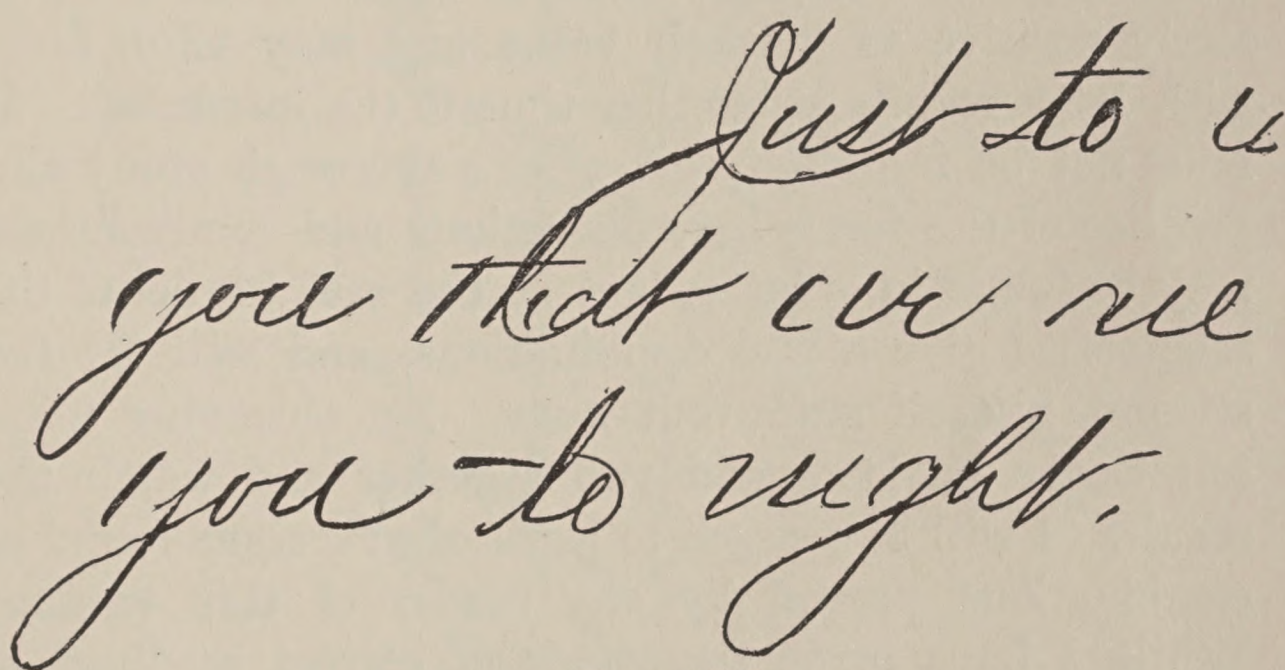 Just to
you that we
you to night.